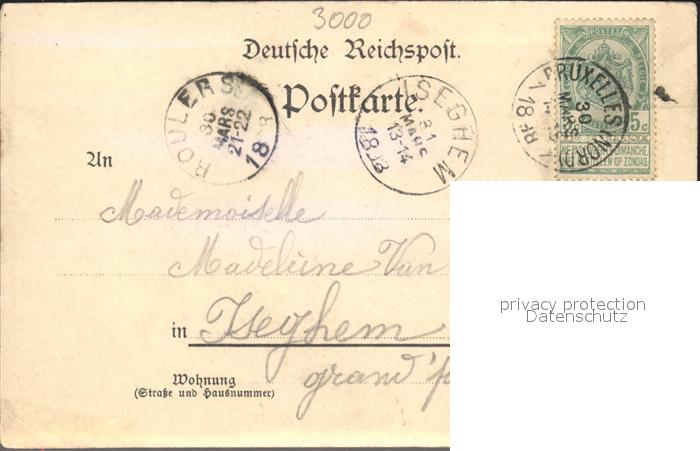 3000
Deutsche Reichspost.
Postkarte.
POSTES
5c
DIMANCHE
OP ZONDAG
BRUXELLES (NORD)
30
MARS
18
ROULERS
30
MARS
21-22
18
ISEGHEM
31
MARS
13-14
An
Mademoiselle
Madeleine Van
in Iseghem
grand'
Wohnung
(Straße und Hausnummer)
privacy protection
Datenschutz